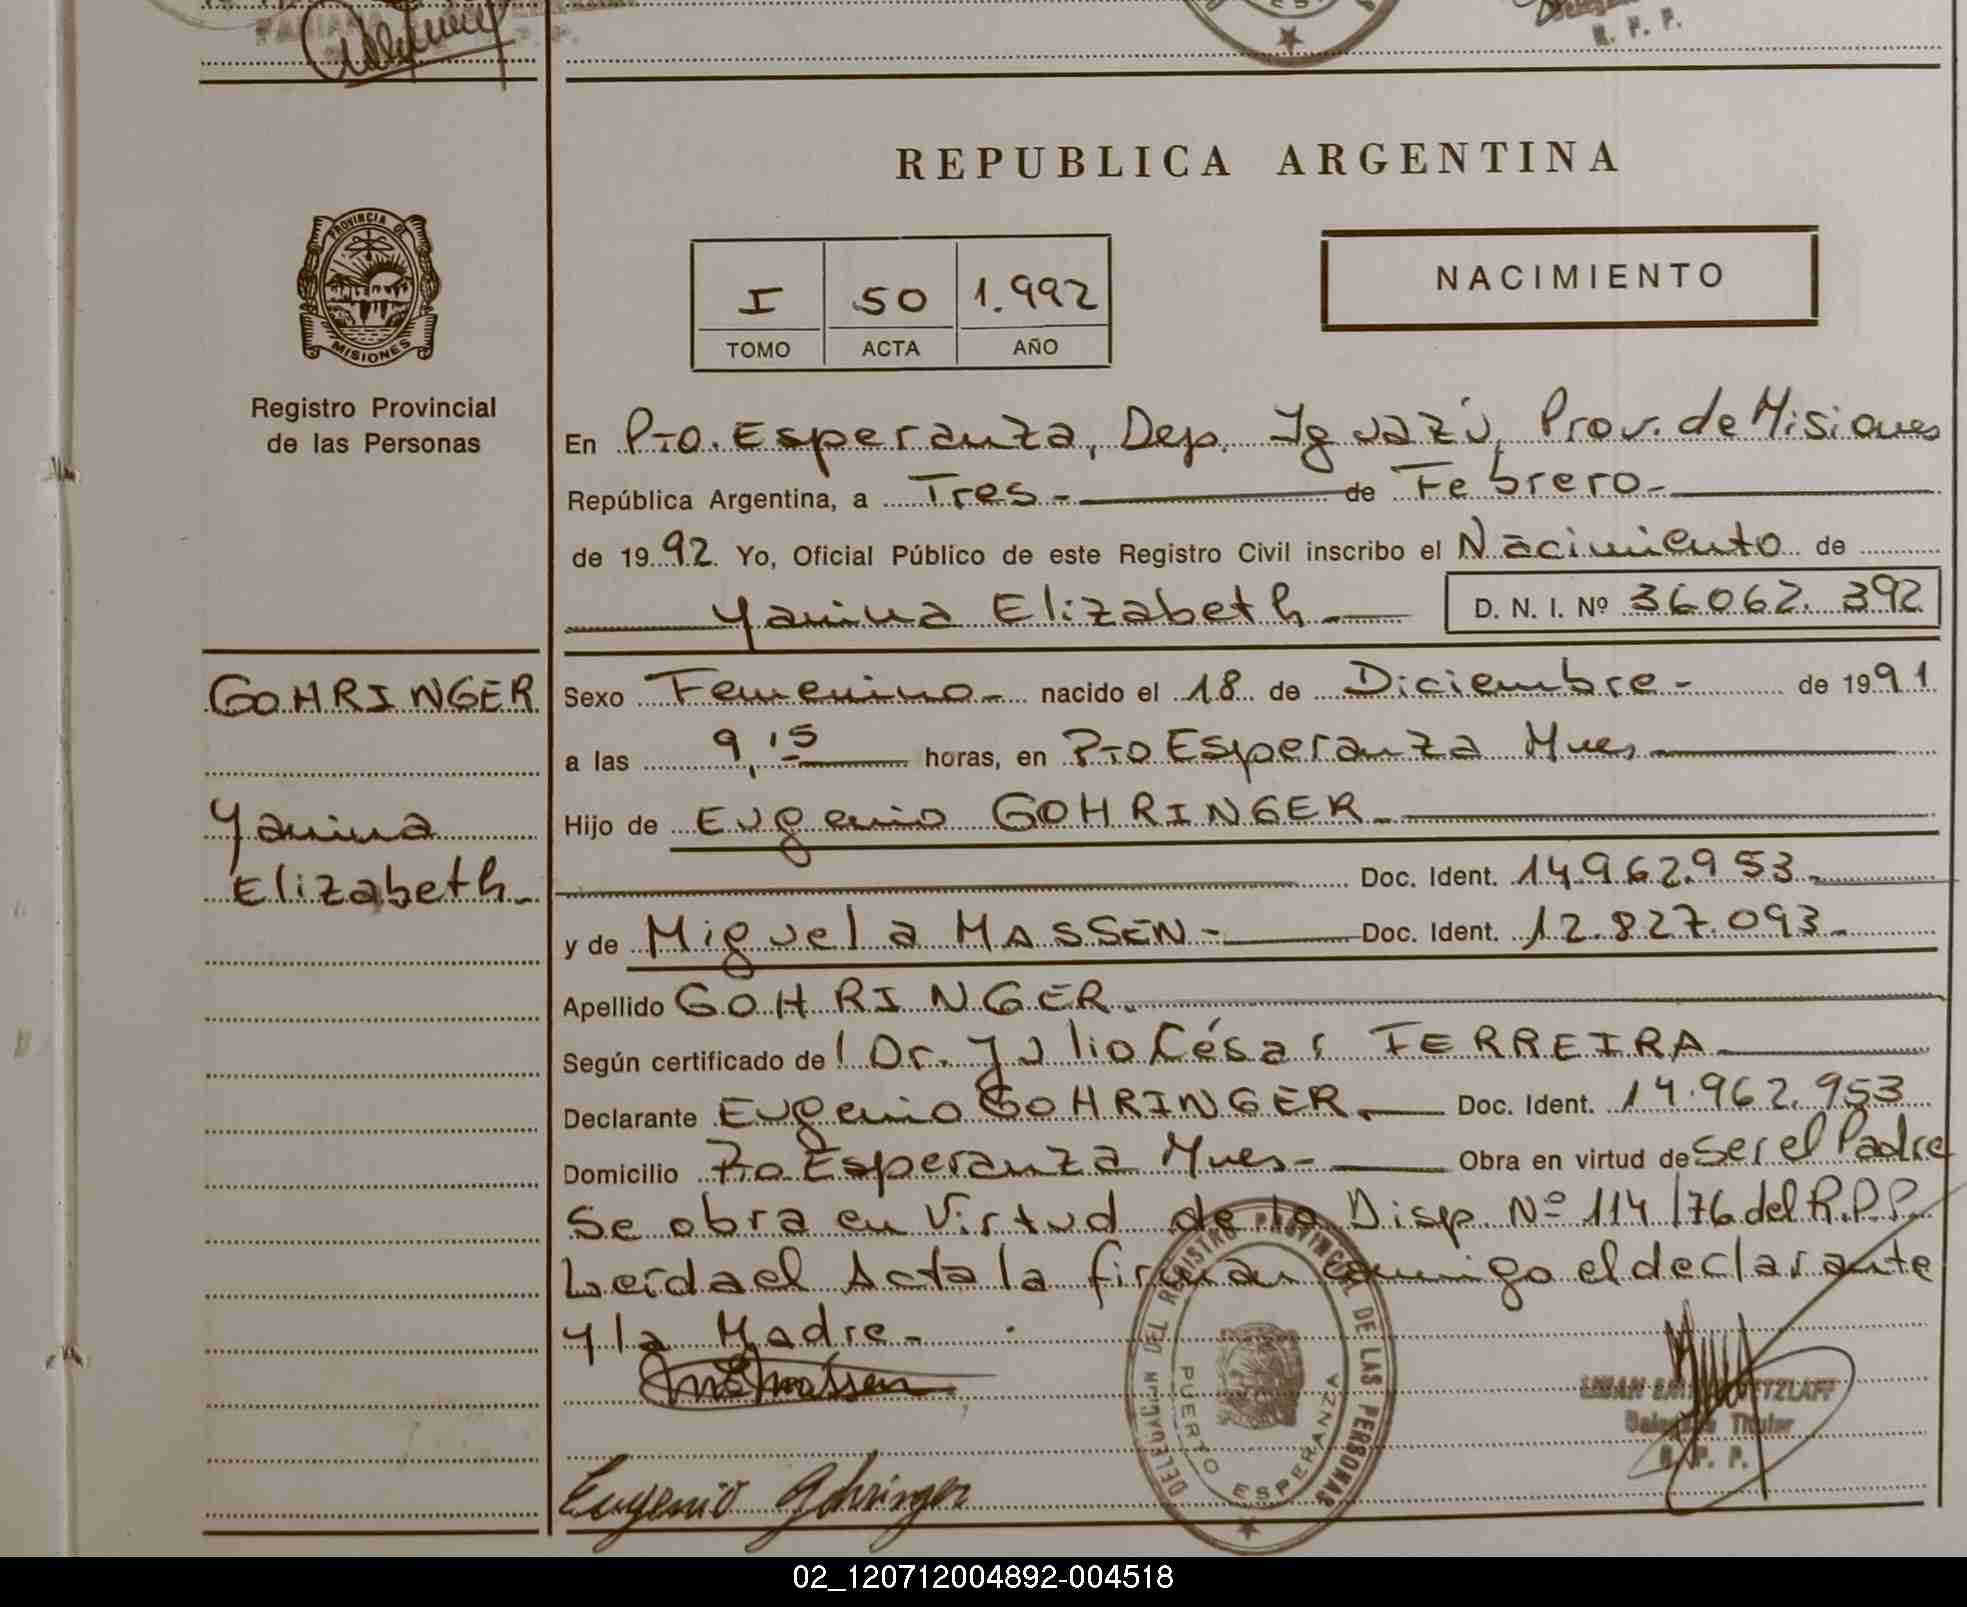 R. P. P.
REPUBLICA ARGENTINA
PROVINCIA DE
MISIONES
Registro Provincial
de las Personas
I 50 1.992
TOMO ACTA AÑO
NACIMIENTO
En Pto. Esperanza, Dep. Iguazú, Prov. de Misiones
República Argentina, a Tres - de Febrero -
de 1992. Yo, Oficial Público de este Registro Civil inscribo el Nacimiento de
Yanina Elizabeth - D. N. I. Nº 36062.392
GOHRINGER
Sexo Femenino - nacido el 18 de Diciembre - de 1991
a las 9,15 horas, en Pto Esperanza Mnes
Yanina
Elizabeth -
Hijo de Eugenio GOHRINGER -
Doc. Ident. 14.962.953 -
y de Miguela MASSEN - Doc. Ident. 12.827.093 -
Apellido GOHRINGER.
Según certificado de l Dr. Julio César FERREIRA
Declarante Eugenio GOHRINGER. Doc. Ident. 14.962.953
Domicilio Pto Esperanza Mnes - Obra en virtud de ser el Padre
Se obra en Virtud de la Disp. Nº 114/76 del R.P.P.
Leída el Acta la firman conmigo el declarante
y la Madre -
DELEGACION DEL REGISTRO PROVINCIAL DE LAS PERSONAS
PUERTO ESPERANZA
Titular
R. P. P.
Eugenio Gohringer
02_120712004892-004518